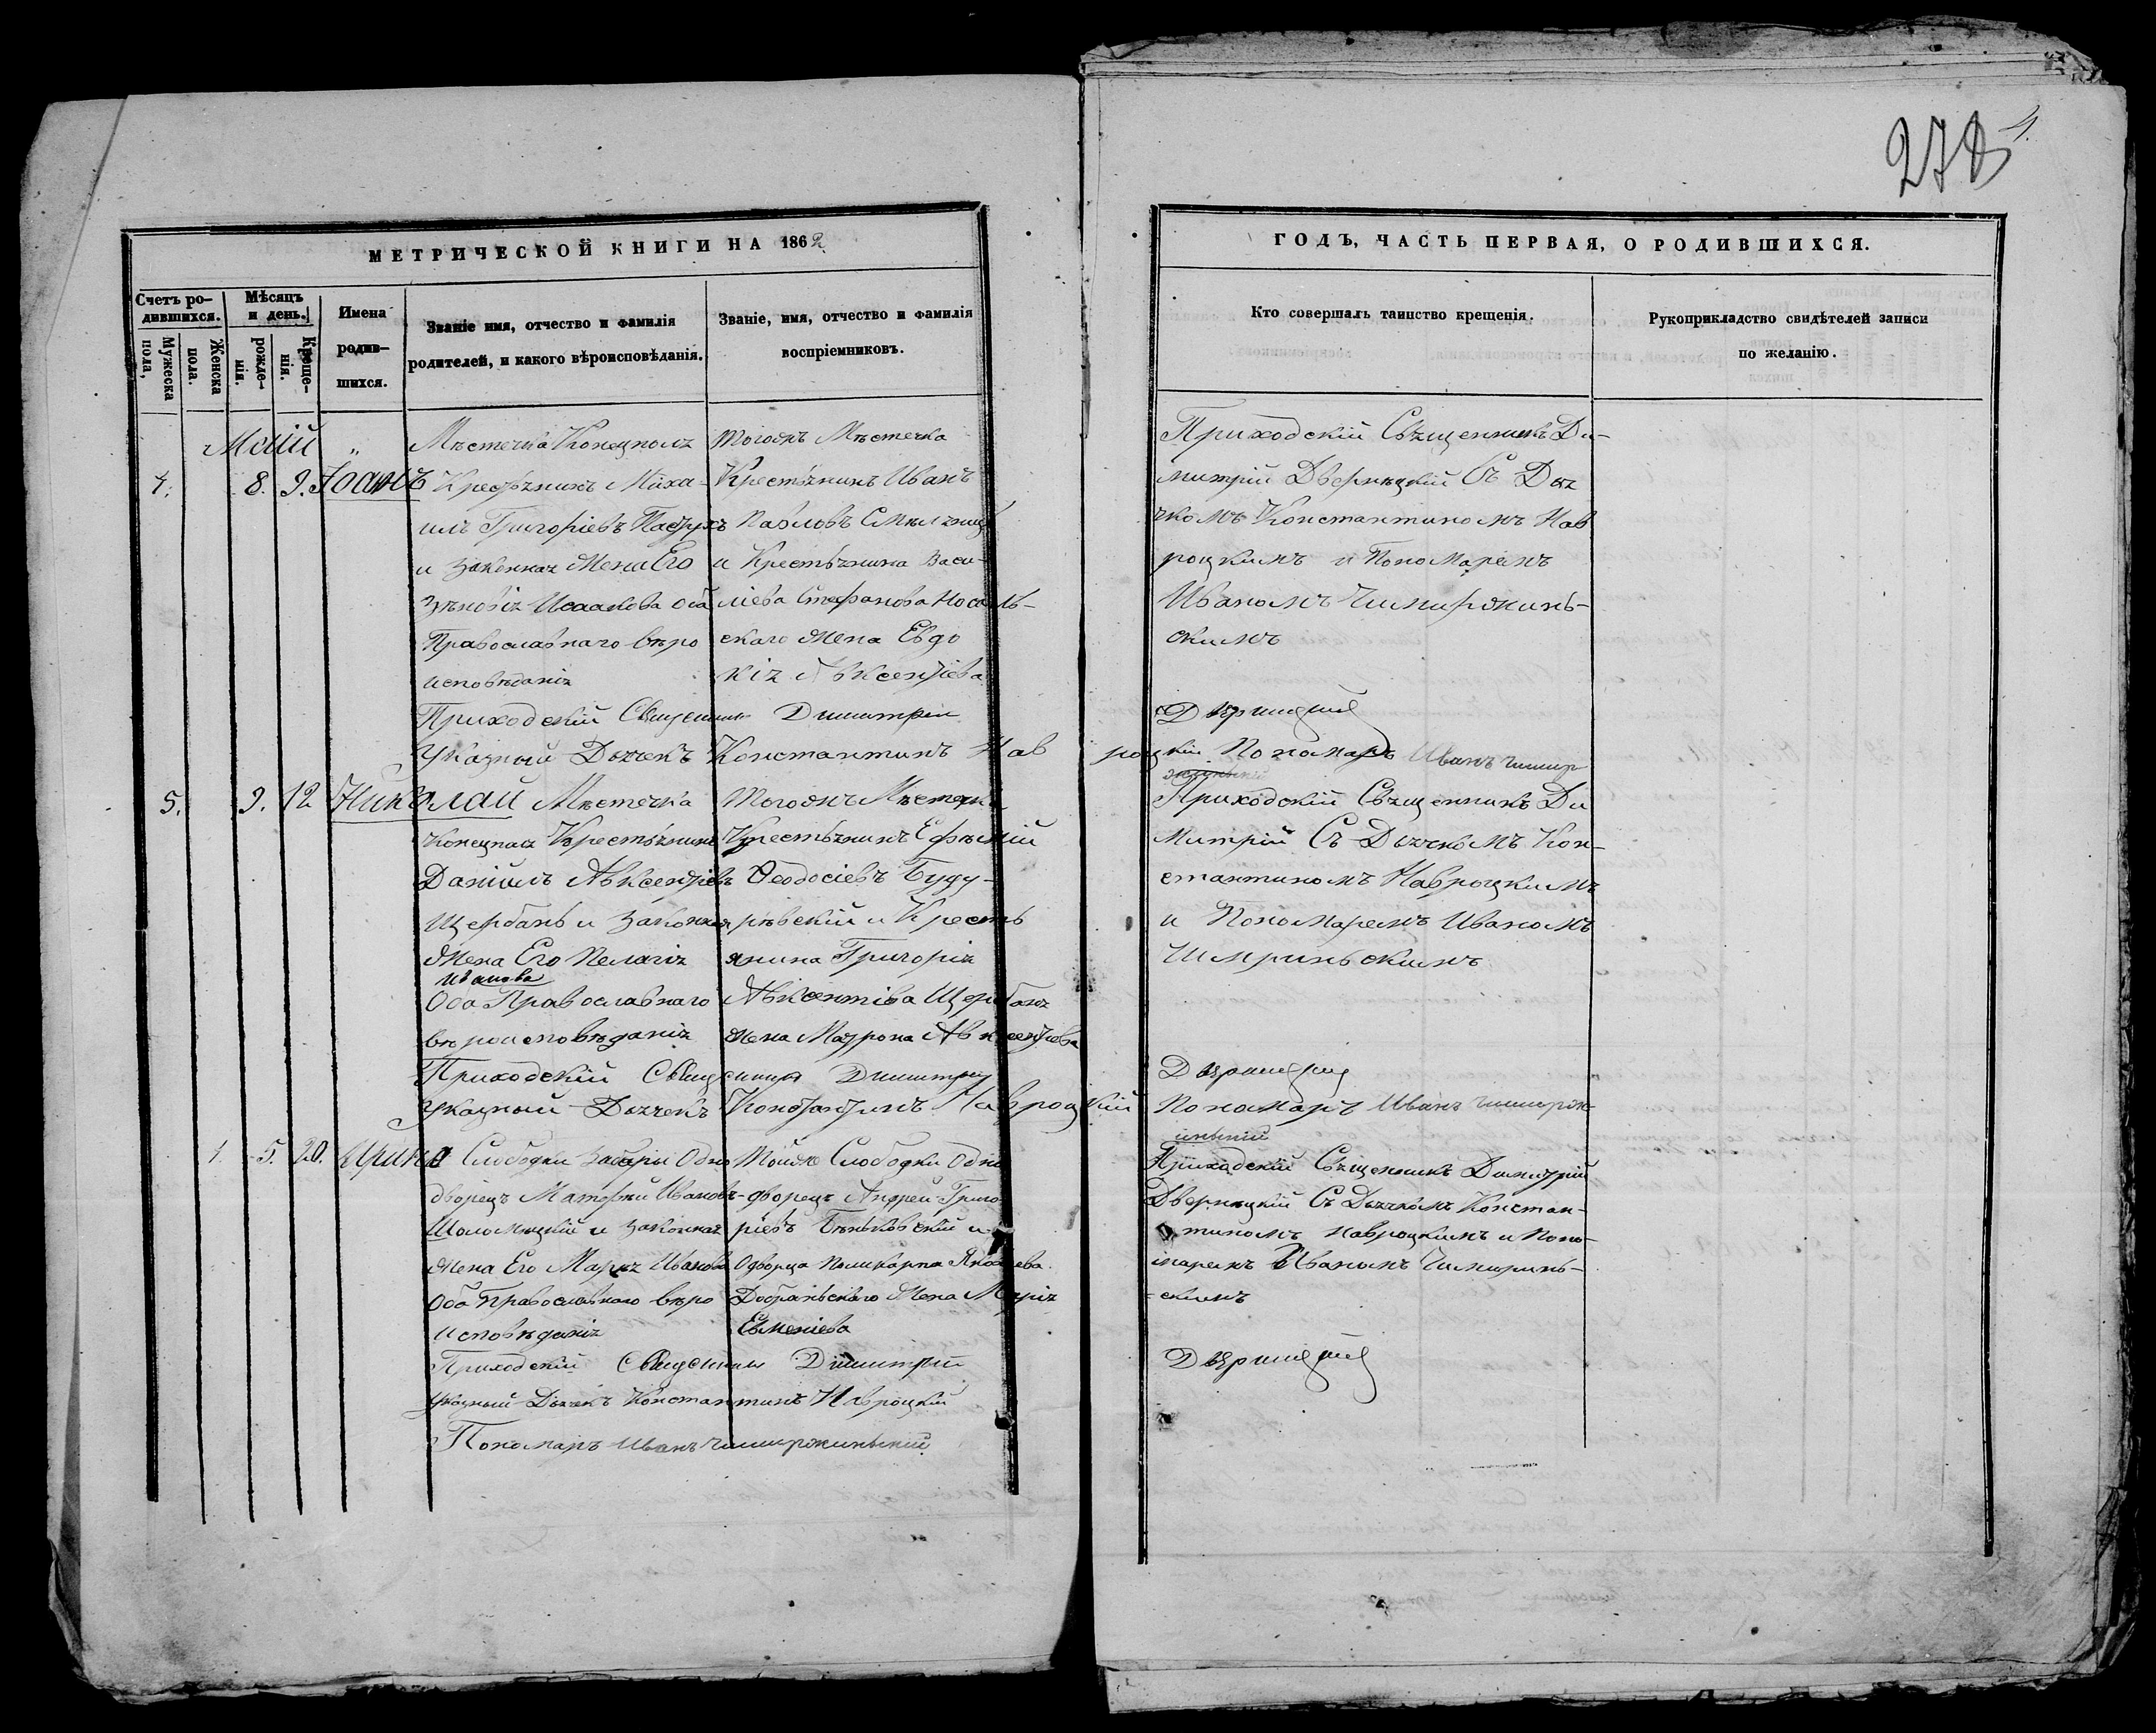 278
4.
МЕТРИЧЕСКОЙ КНИГИ НА 1862
ГОДЪ, ЧАСТЬ ПЕРВАЯ, О РОДИВШИХСЯ.
Счетъ родившихся.
Мужеска пола,
Женска пола.
Мѣсяцъ и день.
рожденія.
Крещенія.
Имена родившихся.
Званіе имя, отчество и фамилія
родителей, и какого вѣроисповѣданія.
Званіе, имя, отчество и фамилія
воспріемниковъ.
Кто совершалъ таинство крещенія.
Рукоприкладство свидѣтелей записи
по желанію.
Маій
4. 8. 9. Іоаннъ
Мѣстечка Конецполя
Крестьянинъ Миха-
илъ Григоріевъ Пастухъ
и законная Жена Его
Зѣновія Исаакова оба
Православнаго вѣро
исповѣданія
Тогожъ Мѣстечка
Крестьянинъ Иванъ
Павловъ
и Крестьянина Васи-
ліева Стефанова
скаго Жена Евдо
кія Авксентіева
Приходскій Священникъ Ди-
митрій Дверницкій Съ Дья
чкомъ Константиномъ Нав
роцкимъ и Пономаремъ
Иваномъ Чимиржинь-
скимъ
Приходскій Священникъ Димитрій Дверницкій
Указный Дьячекъ Константинъ Навроцкій Пономарь Иванъ Чимир
жинскій
5. 9. 12 Николай
Мѣстечка
Конецпая Крестьянинъ
Даніилъ Авксентіевъ
Щербань и Законная
Жена Его Пелагія
Иванова
Оба Православнаго
вѣроисповѣданія
Тогожъ Мѣстечка
Крестьянинъ Ефимій
Ѳеодосіевъ Буду-
рѣвскій и Кресть
янина Григорія
Авксентіва Щербаня
Жена Матрона Авксентіева
Приходскій Священникъ Ди
митрій Съ Дьячкомъ Кон-
стантиномъ Навроцкимъ
и Пономаремъ Иваномъ
Чимриньскимъ
Приходскій Священникъ Димитрій Дверницкій
Указный Дьячекъ Константинъ Навроцкій Пономарь Иванъ Чимирж-
иньскій
1. 5. 20. Ирина
Слободки Забары Одно
дворецъ Матфей Ивановъ
Шоломицкій и законная
Жена Его Марія Иванова
Оба Православнаго вѣро
исповѣданія
Тойже Слободки Одно
-дворецъ Андрей Григо
ріевъ Бѣньковскій и
Одворца Поликарпа Яковлева.
Добраньского Жена Марія
Евменіева
Приходскій Священникъ Димитрій
Дверницкій Съ Дьячкомъ Констан-
тиномъ Навроцкимъ и Поно-
маремъ Иваномъ Чимиринь-
скимъ
Приходскій Священникъ Димитрій Дверницкій
Указный Дьячекъ Константинъ Навроцкій
Пономарь Иванъ Чимиржиньскій